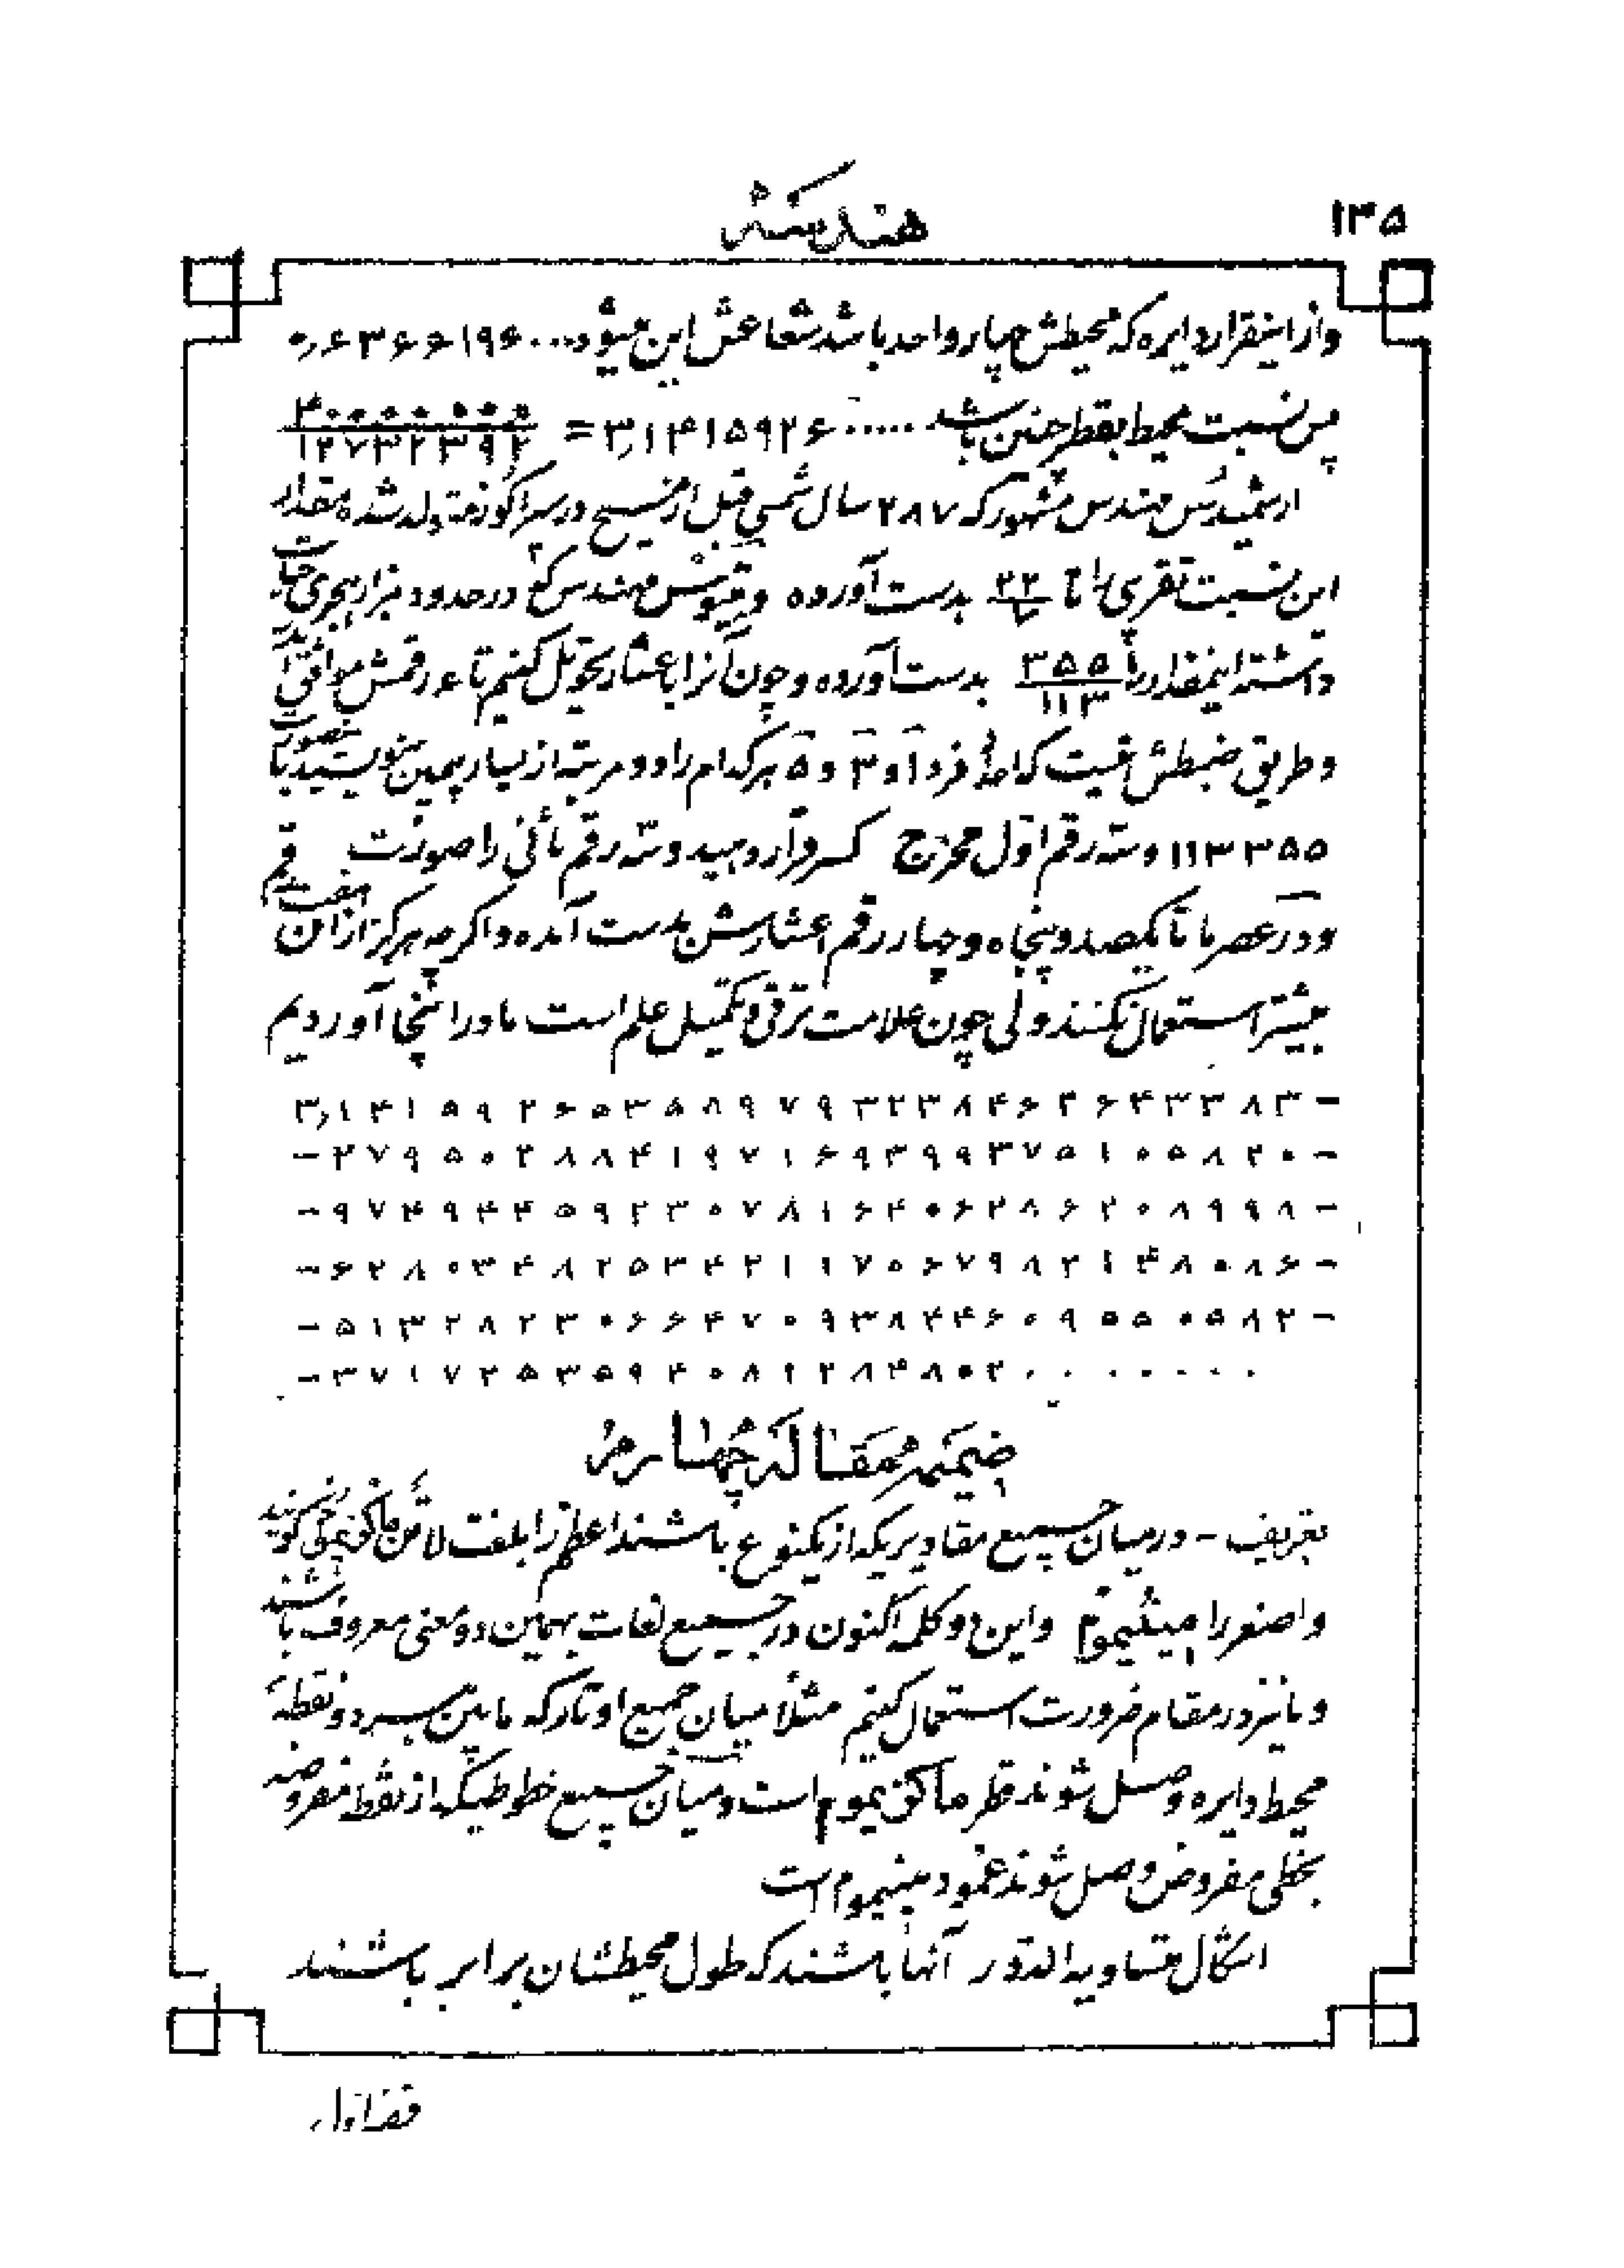 ۱۳۵
هندسه
و از اینقرار دایره که محیطش چهار واحد باشد شعاعش این میشود ...۰٫۶۳۶۶۱۹۶
پس نسبت محیط بقطر چنین باشد .....۳٫۱۴۱۵۹۲۶ = ۴۰۰۰۰۰۰۰/۱۲۷۳۲۳۹۲
ارشمیدس مهندس مشهور که ۲۸۷ سال شمسی قبل از مسیح در سیراکوز متولد شده مقدار
این نسبت تقریبی را تا ۲۲/۷ بدست آورده و متیوس مهندس که در حدود هزار هجری حیات
داشته اینمقدار را تا ۳۵۵/۱۱۳ بدست آورده و چون آنرا باعشار تحویل کنیم تا ۶ رقمش موافق آید
و طریق ضبطش اینست که اعداد فرد ۱ و ۳ و ۵ هر کدام را دو مرتبه از یسار بیمین بنویسید باینصورت
۱۱۳۳۵۵ و سه رقم اول مخرج کسر قرار دهید و سه رقم ثانی را صورت
و در عصر ما تا یکصد و پنجاه و چهار رقم اعشارش بدست آمده و اگرچه هرگز از آن هفت رقم
بیشتر استعمال نکنند ولی چون علامت ترقی و تکمیل علم است ما در اینجا آوردیم
۳٫۱۴۱۵۹۲۶۵۳۵۸۹۷۹۳۲۳۸۴۶۲۶۴۳۳۸۳-
-۲۷۹۵۰۲۸۸۴۱۹۷۱۶۹۳۹۹۳۷۵۱۰۵۸۲۰-
-۹۷۴۹۴۴۵۹۲۳۰۷۸۱۶۴۰۶۲۸۶۲۰۸۹۹۸-
-۶۲۸۰۳۴۸۲۵۳۴۲۱۱۷۰۶۷۹۸۲۱۴۸۰۸۶-
-۵۱۳۲۸۲۳۰۶۶۴۷۰۹۳۸۴۴۶۰۹۵۵۰۵۸۲-
-۳۷۱۷۲۵۳۵۹۴۰۸۱۲۸۴۸۰۲.......
ضمیمه مقاله چهارم
تعریف - در میان جمیع مقادیریکه از یکنوع باشند اعظم را بلغت لاتن ماکزیمم گویند
و اصغر را مینیموم و این دو کلمه اکنون در جمیع لغات بهمین دو معنی معروف باشند
و ما نیز در مقام ضرورت استعمال کنیم مثلاً میان جمیع اوتار که مابین هر دو نقطهٔ
محیط دایره وصل شوند قطر ماکزیموم است و میان جمیع خطوطیکه از نقطهٔ مفروضه
بخطی مفروض وصل شوند عمود مینیموم است
اشکال متساویة الدور آنها باشند که طول محیطشان برابر باشند